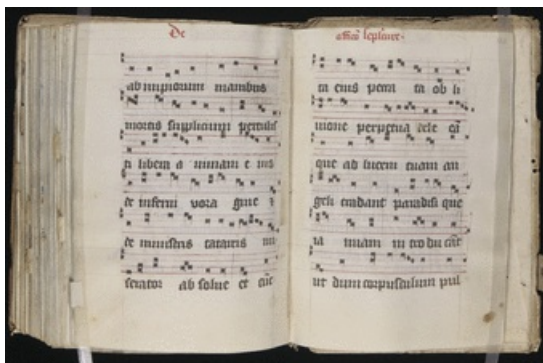 De
ab impiorum manibus
mortis supplicium pertulis
ti libera a nimam e ius
de inferni vora gine
de ministris tartaris mi
serator ab solue et
sepulture
ta eius pecca ta ob li
uione perpetua dele
que ad lucem tuam an
geli tradant paradisi que
ia nuam in tro du
ut dum corpusculum pul